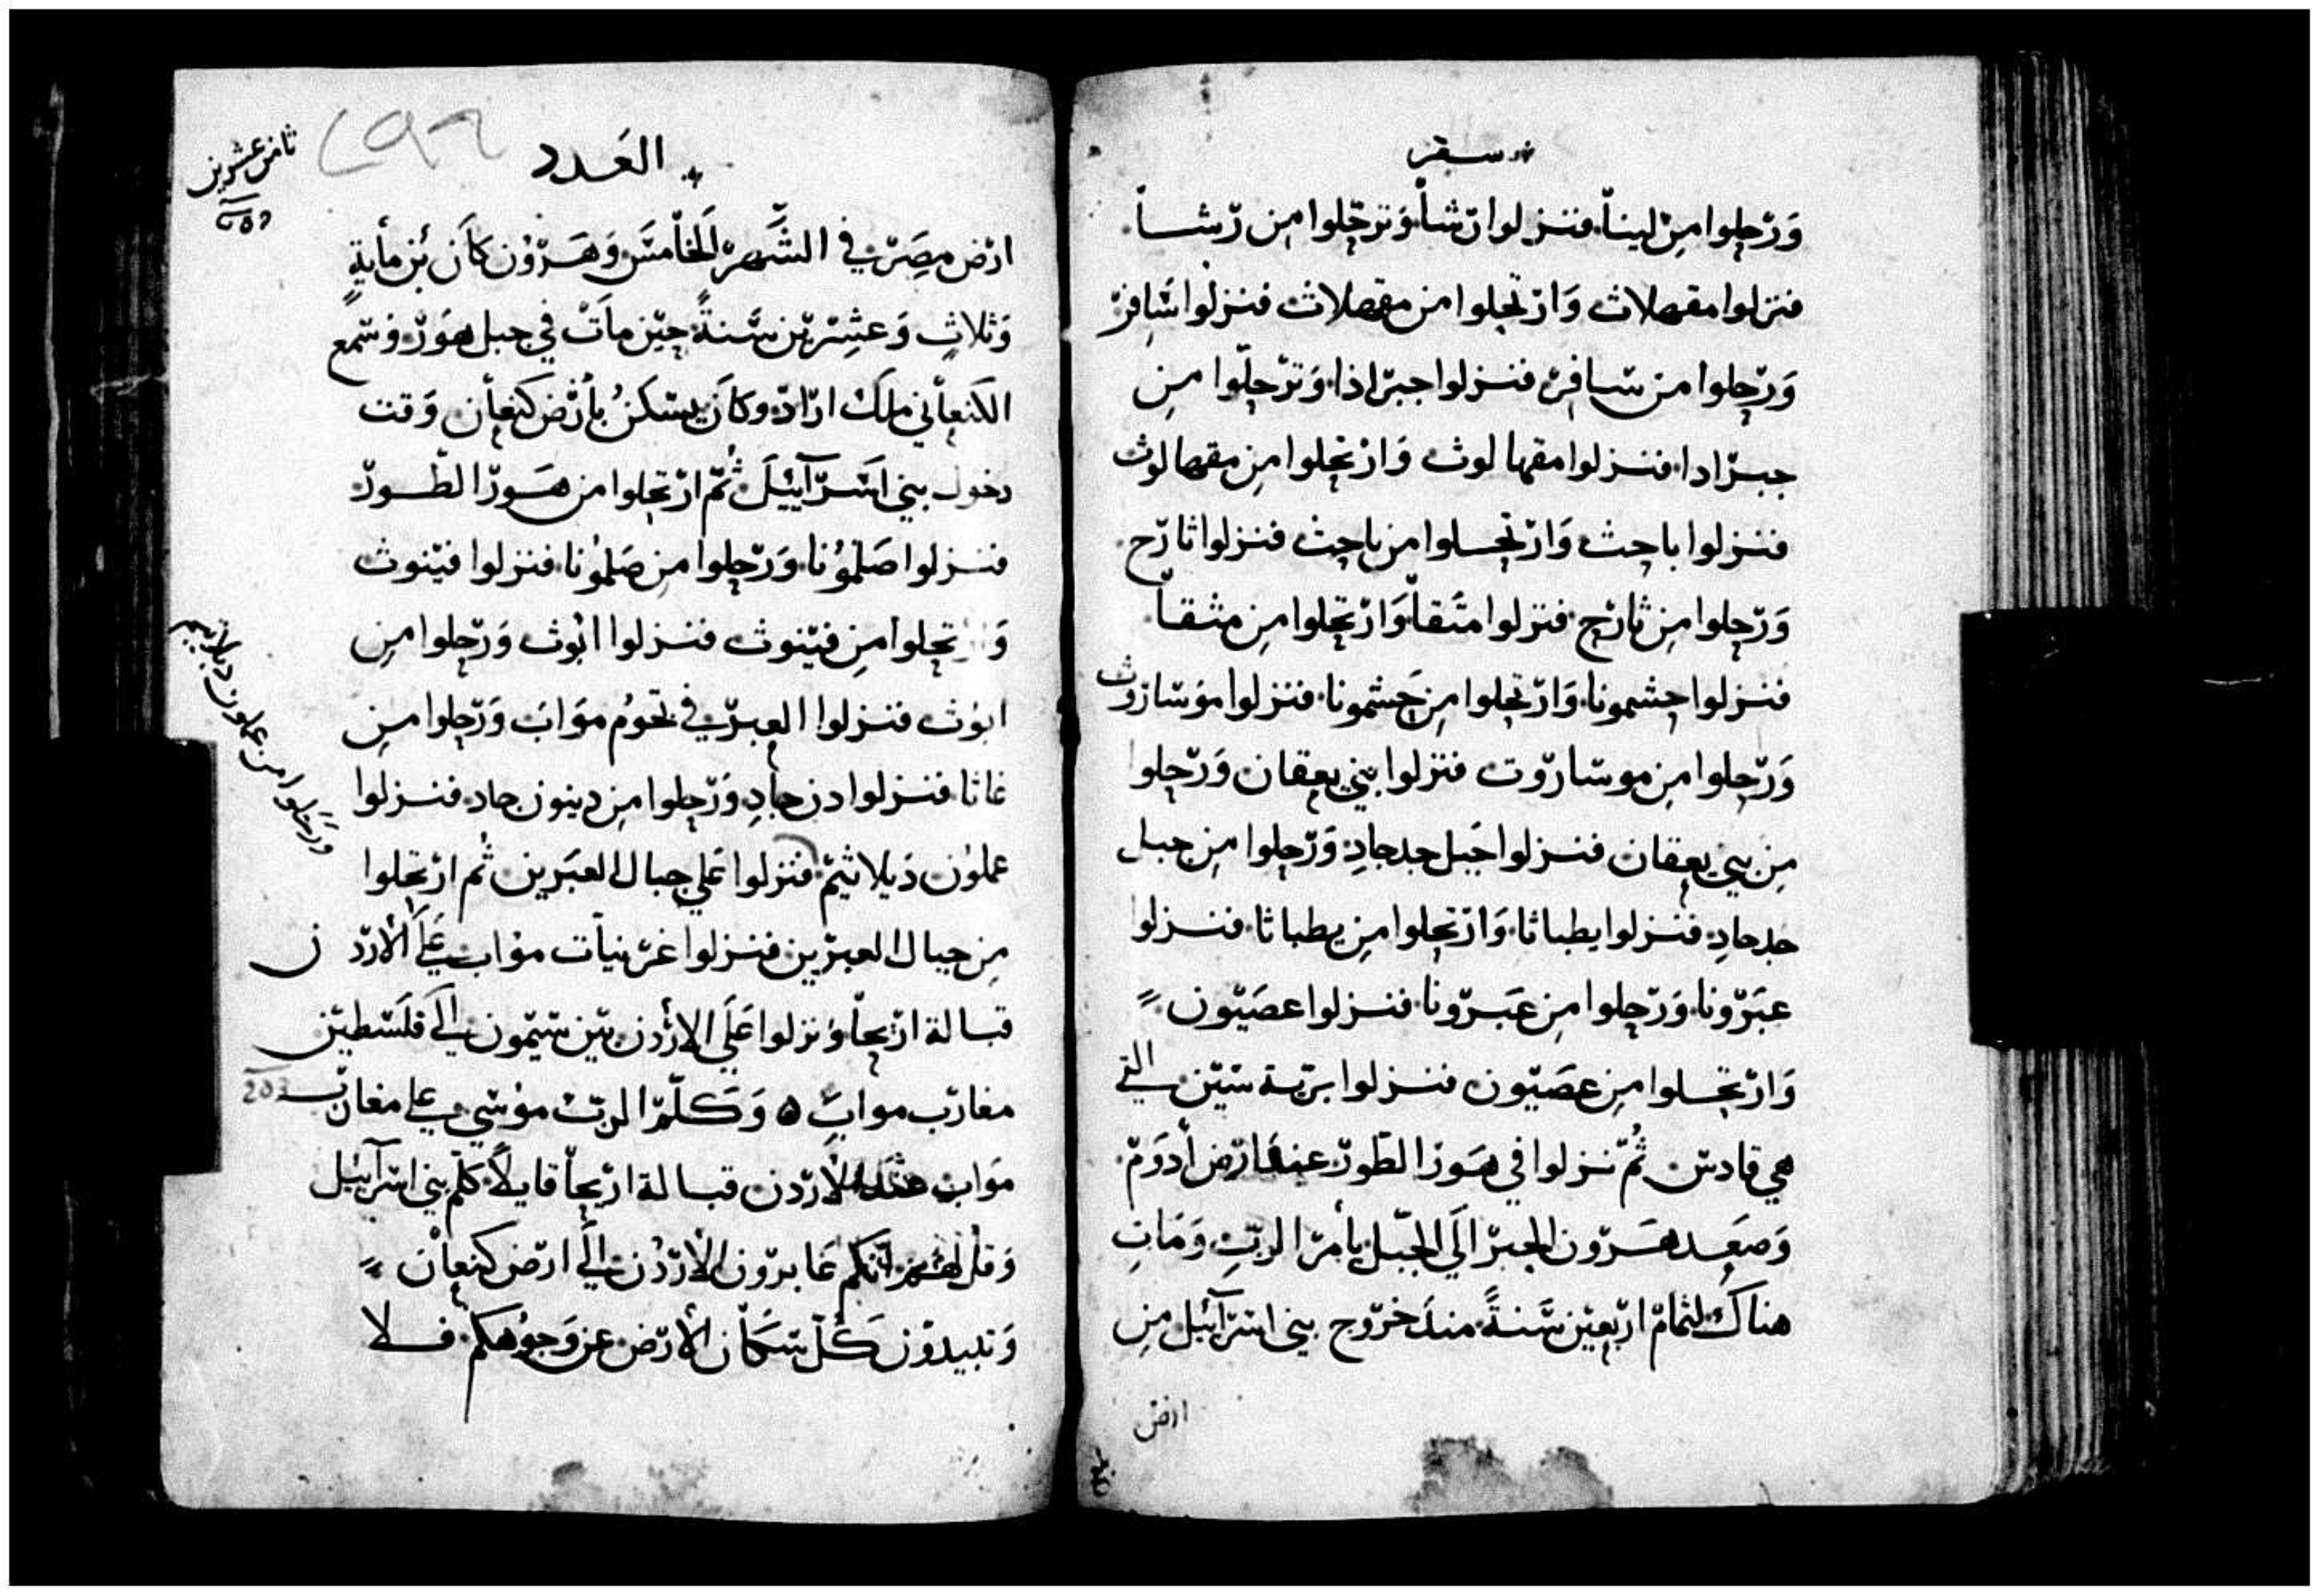 سفر
وَرّحلوا مِن لينا فنزلوا رّشا وَترحّلوا مِن رّشا
فنزلوا مقهلاث وَارتحلوا من مقهلاث فنزلوا شافر
وَرّحلوا من سافر فنزلوا جبرادا وَترحّلوا مِن
جبرادا فنزلوا مقهالوث وَارتحلوا مِن مقهالوث
فنزلوا باحث وَارتحلوا من باحث فنزلوا ثارح
وَرّحلوا مِن ثارح فنزلوا مثقا وَارتحلوا مِن مثقا
فنزلوا حشمونا وَارتحلوا مِن حَشمونا فنزلوا موساروث
وَرّحلوا مِن موساروت فنزلوا بني يعقان وَرّحلوا
مِن بني يعقان فنزلوا جَبل جدجادِ وَرّحلوا مِن جبل
جدجادِ فنزلوا يطباثا وَارتحلوا مِن يطباثا فنزلوا
عبَرّونا وَرّحلوا مِن عَبرّونا فنزلوا عصَيّون
وَارتحلوا مِن عصَيّون فنزلوا برّية سين التي
هي قادس ثُمّ نزلوا في هَور الطّور عند ارّض أدوَم
وَصعَد هَرّون الحبر الَي الجبّل بأمر الربّ وَمَات
هناك لثمام ارّبعين سَنةً منذ خرّوج بني اسرآئيل مِن
ارض
العَدد
ثامن عشرين
٢٩٦
ارّض مِصَر في الشَّهر الخامس وَهَرّون كاَن بُن مأية
وَثلاثٍ وَعشِرين سَنةً حيّن ماتَ في جبل هوَر وسمع
الكنعأني ملك ارّاد وكاَن يسكنُ بأرّض كنعأن وَقت
دخول بني اسَرّآئيلَ ثُمّ ارتحلوا من هَور الطّور
فنزلوا صَلمُونا وَرّحلوا مِن صَلمُونا فنزلوا فيّنوث
وَارتحلوا مِن فيّنوث فنزلوا ابُوث وَرّحلوا مِن
ابوُث فنزلوا العبرّ في تخوُم موَاب وَرّحلوا مِن
غاثا فنزلوا دن جاَدِ وَرّحلوا مِن دينون جاد فنزلوا
عملوُن دَبلاثيّم فنزلوا عَلي جبال العبَرين ثُم ارتحلوا
ورّحلوا من عملون دبلاثيم
مِن جبال العبرّين فنزلوا غرّبيات موُاب عَلَي الأرّدن
قبالة ارّيحا وَنزلوا عَلَي الارّدن بين سيّمون الَي فلَسطين
مغارّب موابَ ه وَكلّم الربّ موُسي علي مغارّب
203
موَاب عند الأرّدن قبالة ارّيحا قايلاً كلّم بني اسرآئيل
وَقل لهُم انّكم عَابرّون الأرّدُن الَي ارّض كنعأن
وَتبيدوُن كُلّ سكّان الأرّض عن وَجوُهكم فلا